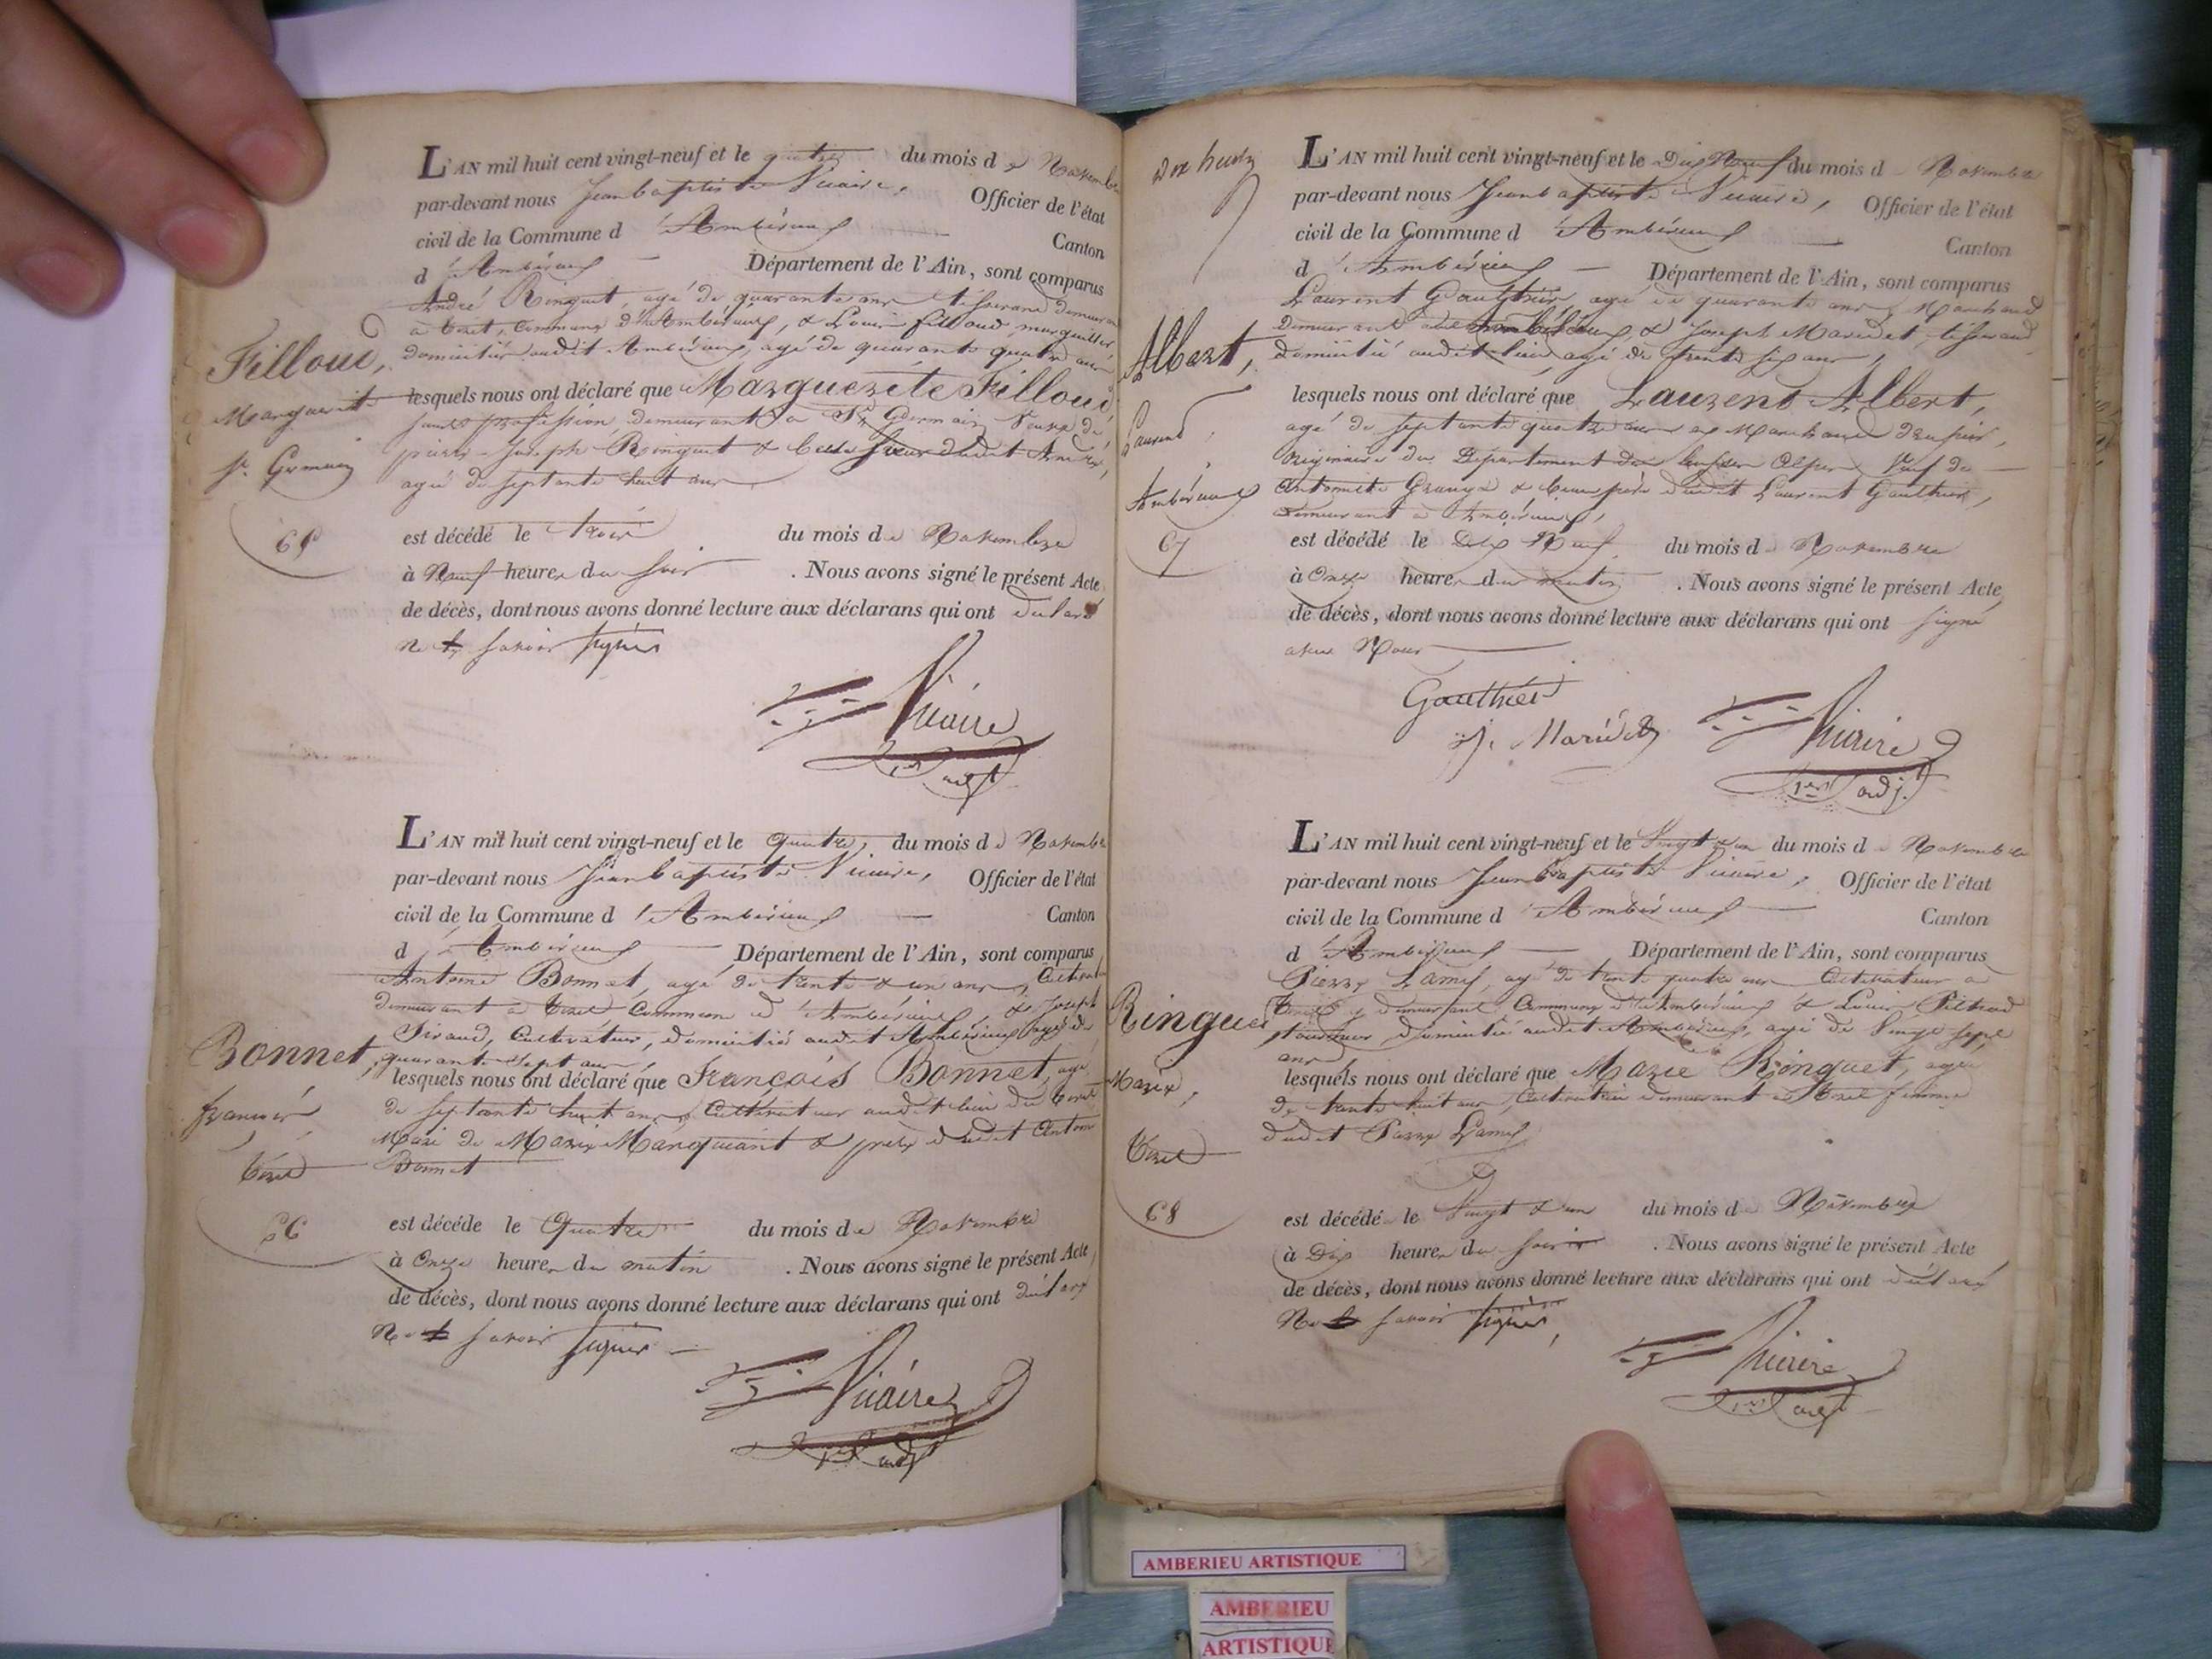 L'AN mil huit cent vingt-neuf et le quatre du mois de Novembre
par-devant nous Jean baptiste Vicaire, Officier de l'état
civil de la Commune d'Ambérieux — Canton
d'Ambérieux — Département de l'Ain, sont comparus
André Ringuet, agé de quarante ans tisserand demeurant
à Tiret, Commune d'Ambérieux, & Louis filloud marguillier
domicilié audit Ambérieux, agé de quarante quatre ans
Filloud,
Marguerite
St. Germain
65
lesquels nous ont déclaré que Marguerite Filloud
sans profession demeurant à St. Germain Veuve de
Joseph Ringuet & belle soeur dudit André,
agée de septante huit ans
est décédé le trois du mois de Novembre
à Neuf heures du soir . Nous avons signé le présent Acte
de décès, dont nous avons donné lecture aux déclarans qui ont déclaré
ne savoir signer
Vicaire
1er adjt
L'AN mil huit cent vingt-neuf et le quatre, du mois de Novembre
par-devant nous Jean baptiste Vicaire, Officier de l'état
civil de la Commune d'Ambérieux — Canton
d'Ambérieux — Département de l'Ain, sont comparus
Antoine Bonnet, agé de trente & un ans, Cultivateur
demeurant à Tiret Commune d'Ambérieux, & Joseph
Siraud, Cultivateur, domicilié audit Ambérieux agé de
quarante sept ans,
Bonnet,
françois
Tiret
66
lesquels nous ont déclaré que François Bonnet, agé
de septante huit ans, Cultivateur audit lieu de Tiret
Mari de Marie Manquant & père dudit Antoine
Bonnet
est décédé le Quatre du mois de Novembre
à Onze heures du matin . Nous avons signé le présent Acte
de décès, dont nous avons donné lecture aux déclarans qui ont déclaré
Ne savoir signer —
Vicaire
1er adjt
L'AN mil huit cent vingt-neuf et le Dix Neuf du mois de Novembre
par-devant nous Jean baptiste Vicaire, Officier de l'état
civil de la Commune d'Ambérieux — Canton
d'Ambérieux — Département de l'Ain, sont comparus
Laurent Gaulthier, agé de quarante ans, Marchand
Demeurant à Ambérieux, & Joseph Maridet, tisserand
domicilié audit lieu, agé de trente six ans,
Albert,
Laurent,
Ambérieux
67
lesquels nous ont déclaré que Laurent Albert,
agé de septante quatre ans Marchand drapier,
originaire du Département des hautes Alpes Veuf de
Antoinette Grange & beau père dudit Laurent Gaulthier,
demeurant à Ambérieux,
est décédé le Dix Neuf du mois de Novembre
à Onze heures du matin . Nous avons signé le présent Acte
de décès, dont nous avons donné lecture aux déclarans qui ont signé
avec Nous
Gaulthier
J. Maridet
Vicaire
1er adjt
L'AN mil huit cent vingt-neuf et le Vingt & un du mois de Novembre
par-devant nous Jean baptiste Vicaire, Officier de l'état
civil de la Commune d'Ambérieux — Canton
d'Ambérieux — Département de l'Ain, sont comparus
Pierre Lamy, agé de trente quatre ans Cultivateur à
Tiret y demeurant Commune d'Ambérieux & Louis
domicilié audit Ambérieux, agé de Vingt sept
ans
Ringuet
Marie,
Tiret
68
lesquels nous ont déclaré que Marie Ringuet, agée
de trente huit ans, Cultivatrice demeurant à Tiret femme
dudit Pierre Lamy
est décédé le Vingt & un du mois de Novembre
à Dix heures du soir . Nous avons signé le présent Acte
de décès, dont nous avons donné lecture aux déclarans qui ont déclaré
Ne savoir signer,
Vicaire
1er adjt
AMBERIEU ARTISTIQUE
AMBERIEU
ARTISTIQUE